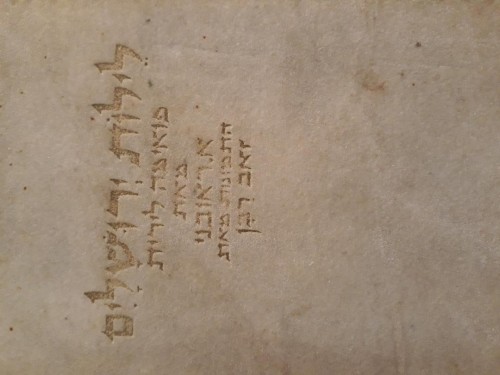 לֵילוֹת יְרוּשָׁלַיִם
פואימה לירית
מאת
א. ראובני
התמונות מאת
זאב רבן